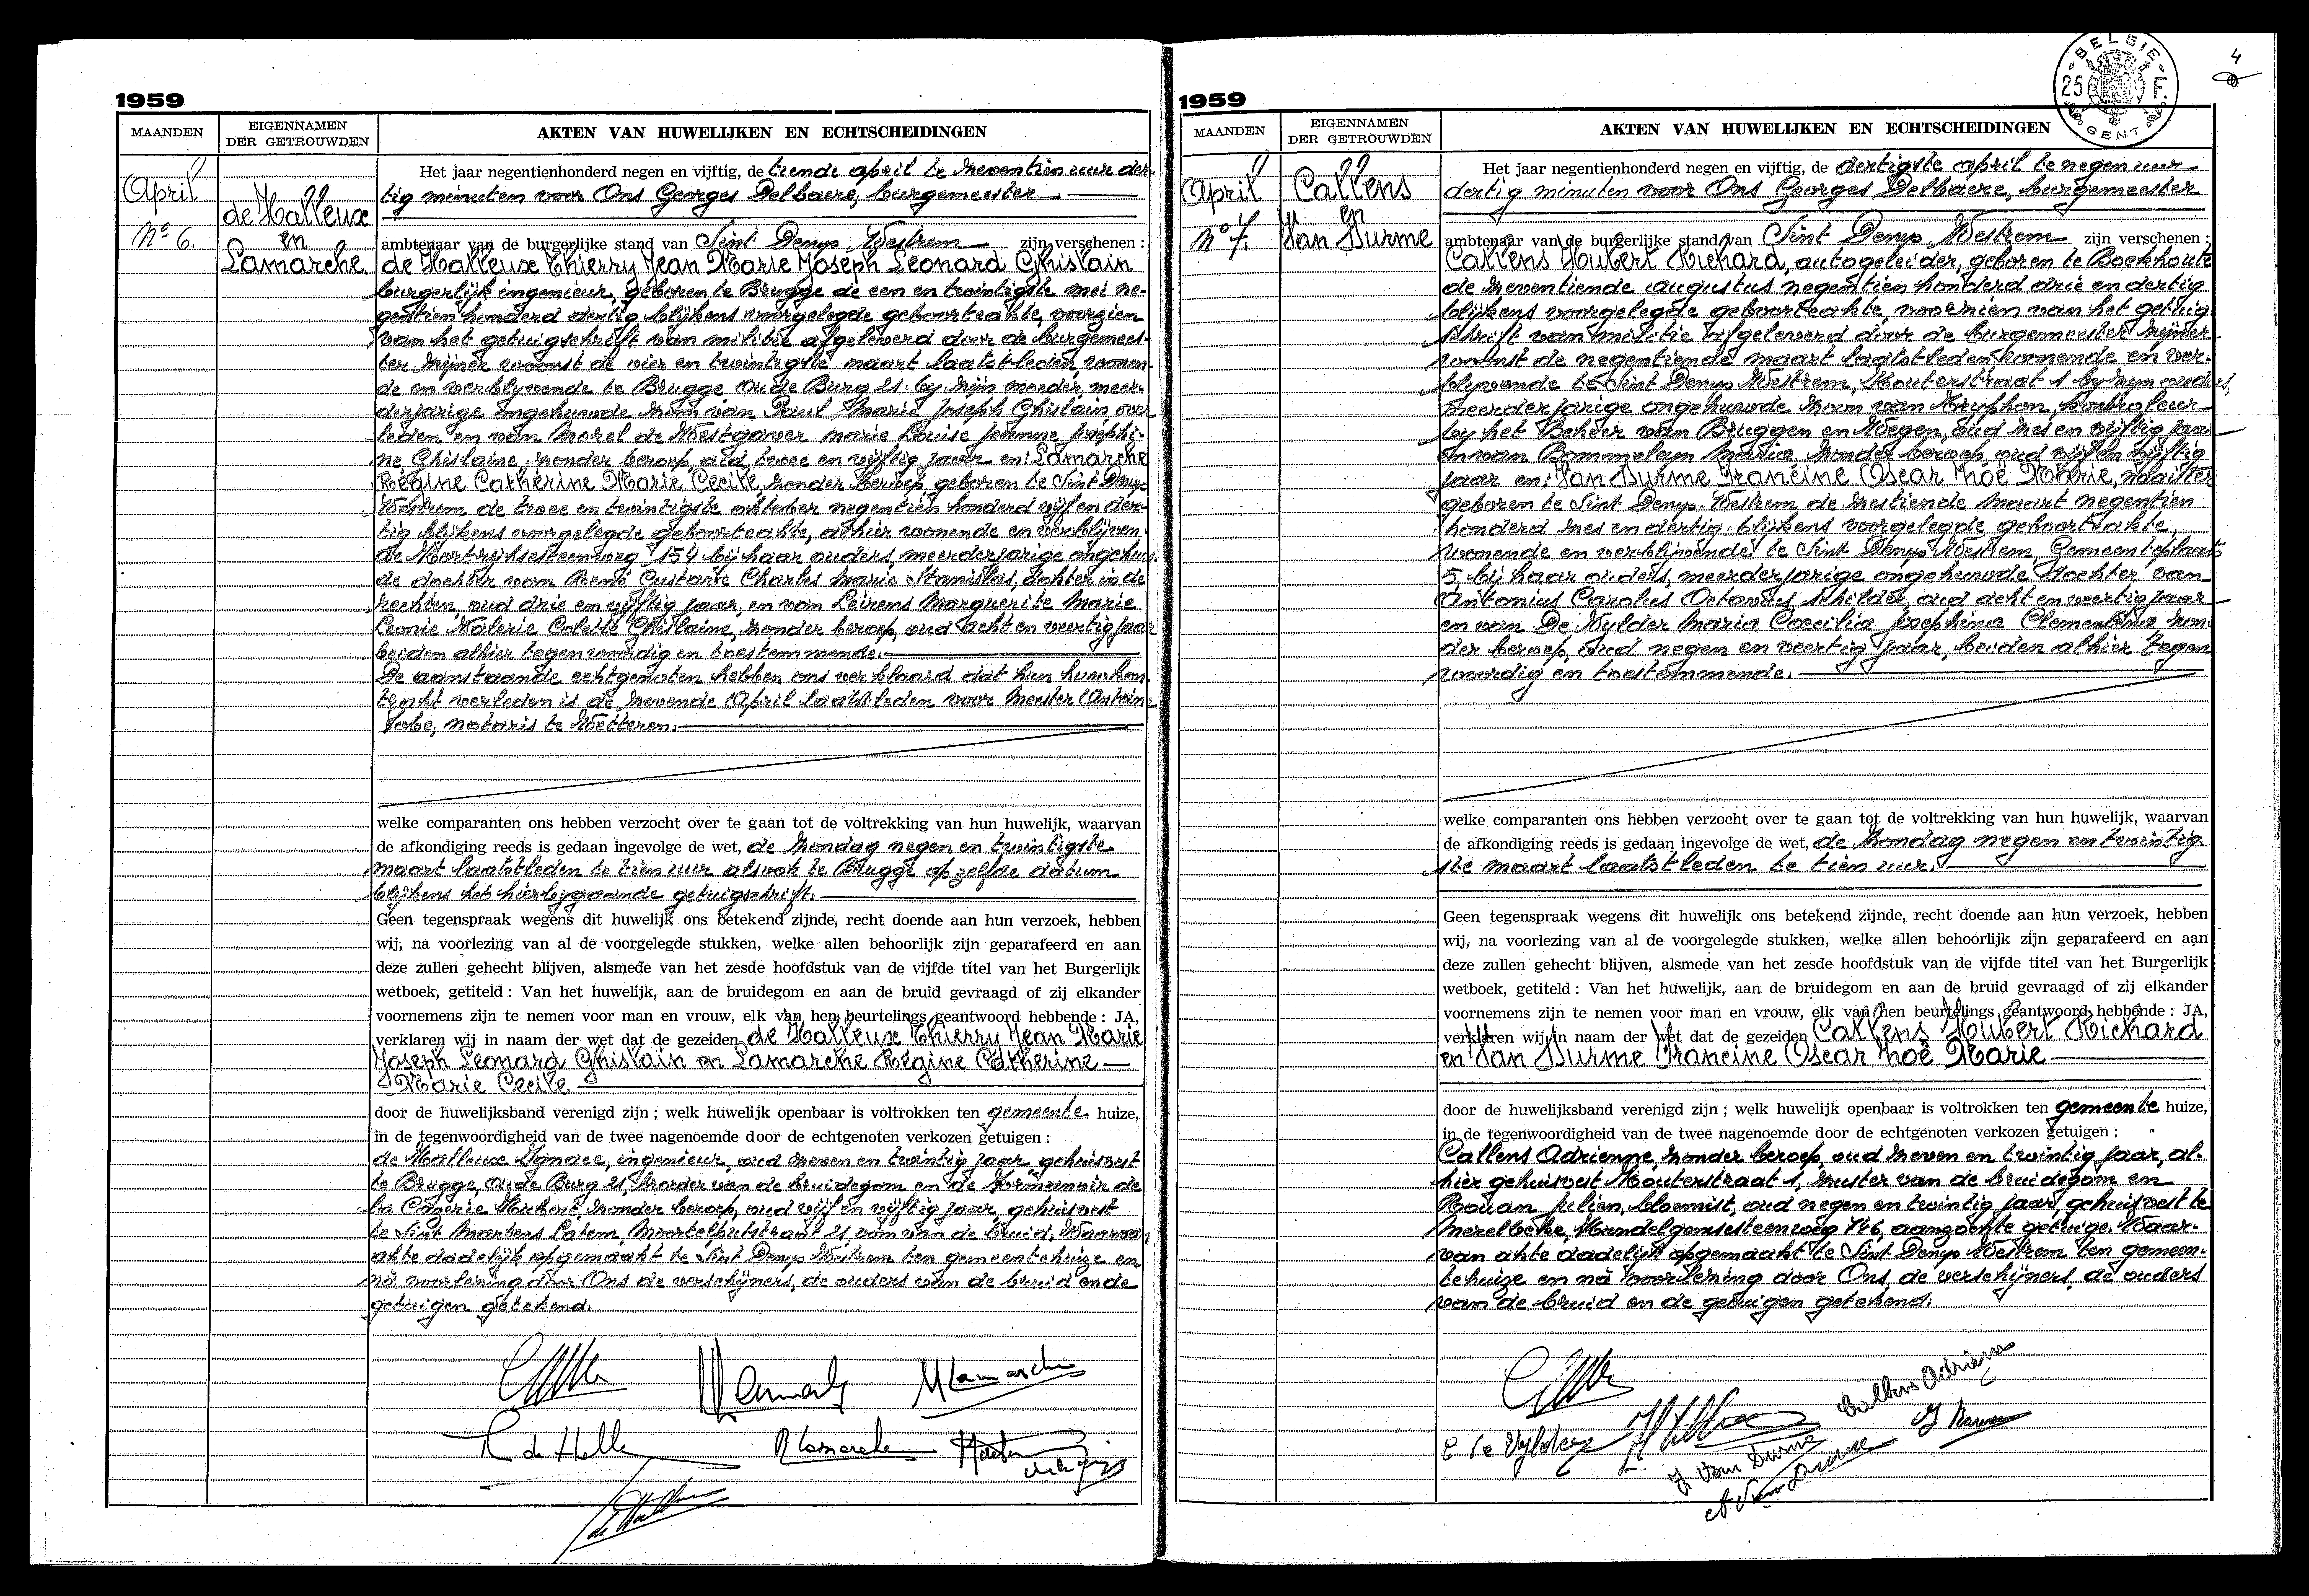 1959
MAANDEN
EIGENNAMEN
DER GETROUWDEN
AKTEN VAN HUWELIJKEN EN ECHTSCHEIDINGEN
April
N° 6.
de Halleux
en
Lamarche.
Het jaar negentienhonderd negen en vijftig, de tiende april te zeventien uur der-
tig minuten voor Ons Georges Delbaere, burgemeester
ambtenaar van de burgerlijke stand van Sint Denys Westrem zijn verschenen :
de Halleux Thierry Jean Marie Joseph Leonard Ghislain
burgerlijk ingenieur, geboren te Brugge de een en twintigste mei ne-
gentien honderd dertig blijkens voorgelegde geboorteakte, voorzien
van het getuigschrift van militie afgeleverd door de burgemees-
ter zijner woonst de vier en twintigste maart laatstleden, wonen-
de en verblyvende te Brugge, Oude Burg 21. by zijn moeder, meer-
derjarige ongehuwde zoon van Paul Marie Joseph Ghislain, over-
leden en van Morel de Westgaver Marie Louise Jeanne Josephi-
ne Ghislaine, zonder beroep, oud twee en vijftig jaar en: Lamarche
Régine Catherine Marie Cecile, zonder beroep, geboren te Sint Denys
Westrem de twee en twintigste oktober negentien honderd vijf en der-
tig blijkens voorgelegde geboorteakte, alhier wonende en verblijven-
de Kortrijksesteenweg 154 bij haar ouders, meerderjarige ongehuw-
de dochter van René Gustave Charles Marie Stanislas, dokter in de
rechten, oud drie en vijftig jaar, en van Leirens Marguerite Marie
Leonie Valerie Colette Ghislaine, zonder beroep, oud acht en veertig jaar
beiden alhier tegenwoordig en toestemmende.
De aanstaande echtgenoten hebben ons verklaard dat hun huwkon-
trakt verleden is de zevende April laatstleden voor meester Antoine
notaris te Wetteren.
welke comparanten ons hebben verzocht over te gaan tot de voltrekking van hun huwelijk, waarvan
de afkondiging reeds is gedaan ingevolge de wet, de zondag negen en twintigste
maart laatstleden te tien uur alsook te Brugge op zelfde datum
blijkens het hierbygaande getuigschrift.
Geen tegenspraak wegens dit huwelijk ons betekend zijnde, recht doende aan hun verzoek, hebben
wij, na voorlezing van al de voorgelegde stukken, welke allen behoorlijk zijn geparafeerd en aan
deze zullen gehecht blijven, alsmede van het zesde hoofdstuk van de vijfde titel van het Burgerlijk
wetboek, getiteld : Van het huwelijk, aan de bruidegom en aan de bruid gevraagd of zij elkander
voornemens zijn te nemen voor man en vrouw, elk van hen beurtelings geantwoord hebbende : JA,
verklaren wij in naam der wet dat de gezeiden de Halleux Thierry Jean Marie
Joseph Leonard Ghislain en Lamarche Régine Catherine
Marie Cecile
door de huwelijksband verenigd zijn ; welk huwelijk openbaar is voltrokken ten gemeente huize,
in de tegenwoordigheid van de twee nagenoemde door de echtgenoten verkozen getuigen :
de Halleux Ignace, ingenieur, oud zeven en twintig jaar, gehuisvest
te Brugge, Oude Burg 21, broeder van de bruidegom en de Formanoir de
la Cazerie Hubert, zonder beroep, oud vijf en vijftig jaar, gehuisvest
te Sint Martens Latem, Moortelputstraat 21, oom van de bruid. Waarvan
akte dadelijk opgemaakt te Sint Denys Westrem ten gemeentehuize en
na voorlezing door Ons de verschijners, de ouders van de bruid en de
getuigen getekend.
R Lamarche
1959
4
BELGIE
25 F.
GENT
MAANDEN
EIGENNAMEN
DER GETROUWDEN
AKTEN VAN HUWELIJKEN EN ECHTSCHEIDINGEN
April
N° 7.
Callens
en
Van Durme
Het jaar negentienhonderd negen en vijftig, de dertigste april te negen uur
dertig minuten voor Ons Georges Delbaere, burgemeester
ambtenaar van de burgerlijke stand van Sint Denys Westrem zijn verschenen :
Callens Hubert Richard, autogeleider, geboren te Boekhoute
de zeventiende augustus negentien honderd drie en dertig
blijkens voorgelegde geboorteakte, voorzien van het getuig-
schrift van militie afgeleverd door de burgemeester zijner
woonst de negentiende maart laatstleden wonende en ver-
blijvende te Sint Denys Westrem, Kouterstraat 1 by zijn ouders,
meerderjarige ongehuwde zoon van Tryphon, kontroleur
by het Beheer van Bruggen en Wegen, oud zes en vijftig jaar
en van Bommeleyn Maria, zonder beroep, oud vijf en vijftig
jaar en: Van Durme Francine Oscar Zoë Marie, naaister
geboren te Sint Denys Westrem de zestiende maart negentien
honderd zes en dertig blijkens voorgelegde geboorteakte,
wonende en verblijvende te Sint Denys Westrem, Gemeenteplaats
5 bij haar ouders, meerderjarige ongehuwde dochter van
Antonius Carolus Octavius, schilder, oud acht en veertig jaar
en van De Wylder Maria Caecilia Josephina Clementina zon-
der beroep, oud negen en veertig jaar, beiden alhier tegen-
woordig en toestemmende.
welke comparanten ons hebben verzocht over te gaan tot de voltrekking van hun huwelijk, waarvan
de afkondiging reeds is gedaan ingevolge de wet, de zondag negen en twintig-
ste maart laatstleden te tien uur.
Geen tegenspraak wegens dit huwelijk ons betekend zijnde, recht doende aan hun verzoek, hebben
wij, na voorlezing van al de voorgelegde stukken, welke allen behoorlijk zijn geparafeerd en aan
deze zullen gehecht blijven, alsmede van het zesde hoofdstuk van de vijfde titel van het Burgerlijk
wetboek, getiteld : Van het huwelijk, aan de bruidegom en aan de bruid gevraagd of zij elkander
voornemens zijn te nemen voor man en vrouw, elk van hen beurtelings geantwoord hebbende : JA,
verklaren wij in naam der wet dat de gezeiden Callens Hubert Richard
en Van Durme Francine Oscar Zoë Marie
door de huwelijksband verenigd zijn ; welk huwelijk openbaar is voltrokken ten gemeente huize,
in de tegenwoordigheid van de twee nagenoemde door de echtgenoten verkozen getuigen :
Callens Adrienne, zonder beroep, oud zeven en twintig jaar, al-
hier gehuisvest Kouterstraat 1, zuster van de bruidegom en
Rouan Julien, bloemist, oud negen en twintig jaar, gehuisvest te
Merelbeke, Hundelgemsesteenweg 746, aangezochte getuige. Waar-
van akte dadelijk opgemaakt te Sint Denys Westrem ten gemeen-
tehuize en na voorlezing door Ons, de verschijners, de ouders
van de bruid en de getuigen getekend.
Callens Adrienne
Van Durme